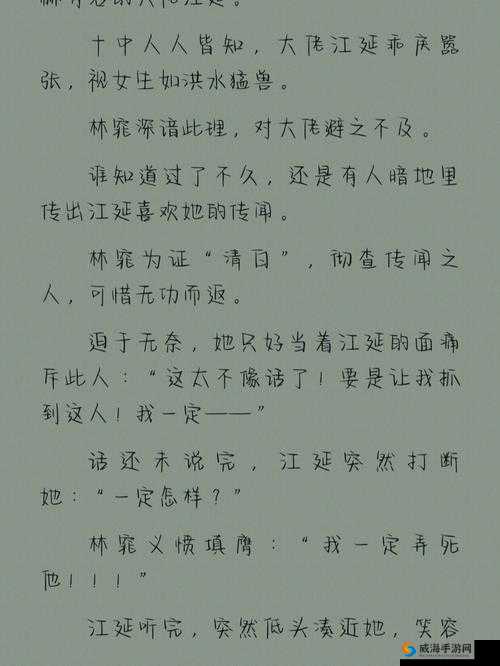 十中人人皆知，大佬江延乖戾嚣
张，视女生如洪水猛兽。
林窕深谙此理，对大佬避之不及。
谁知道过了不久，还是有人暗地里
传出江延喜欢她的传闻。
林窕为证“清白”，彻查传闻之
人，可惜无功而返。
迫于无奈，她只好当着江延的面痛
斥此人：“这太不像话了！要是让我抓
到这人！我一定——”
话还未说完，江延突然打断
她：“一定怎样？”
林窕义愤填膺：“我一定弄死
他！！！”
江延听完，突然低头凑近她，笑容
威海手游网